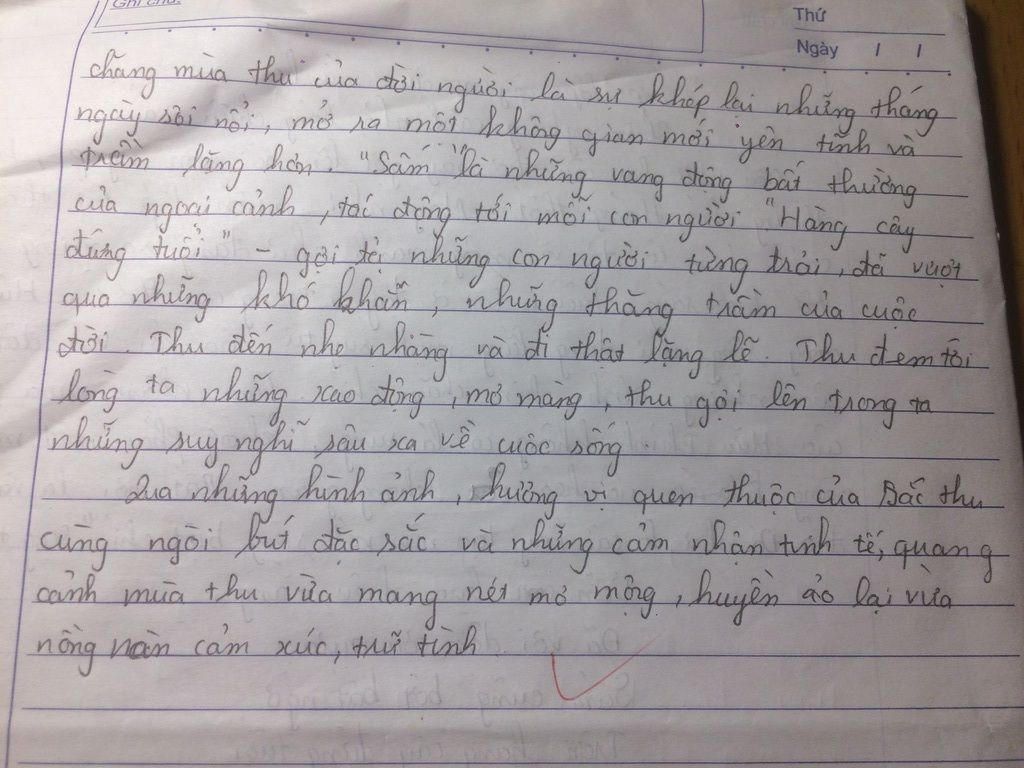 Ghi chú:
Thứ
Ngày / /
chăng mùa thu của đời người là sự khép lại những tháng
ngày sôi nổi, mở ra một không gian mới yên tĩnh và
trầm lặng hơn. "Sấm" là những vang động bất thường
của ngoại cảnh, tác động tới mỗi con người "Hàng cây
đứng tuổi" - gợi tả những con người từng trải, đã vượt
qua những khó khăn, những thăng trầm của cuộc
đời. Thu đến nhẹ nhàng và đi thật lặng lẽ. Thu đem tôi
lòng ta những xao động, mơ màng, thu gợi lên trong ta
những suy nghĩ sâu xa về cuộc sống
Qua những hình ảnh, hương vị quen thuộc của Bắc thu
cùng ngòi bút đặc sắc và những cảm nhận tinh tế, quang
cảnh mùa thu vừa mang nét mơ mộng, huyền ảo lại vừa
nồng nàn cảm xúc, trữ tình